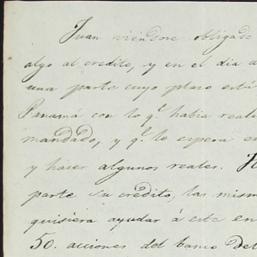 Juan viendose obligado
algo al credito, y en el dia a
una parte cuyo plazo está
Panamá con lo q.e habia reali
mandado, y q.e lo espera en
y hacer algunos reales.
parte su credito, las mism
quisiera ayudar á este en
50. acciones del banco del